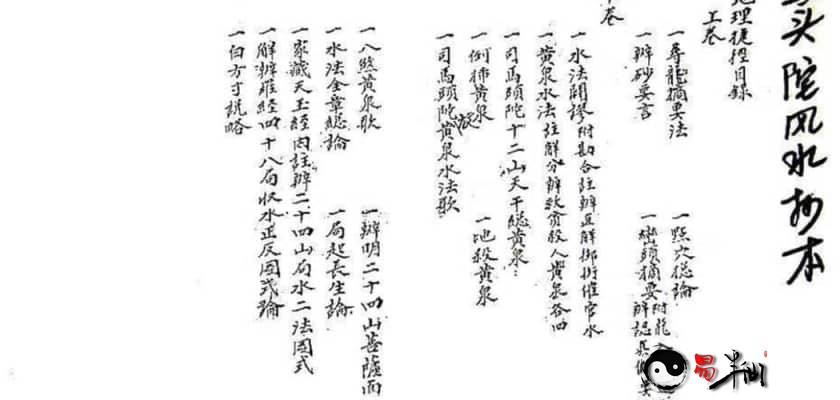 头陀风水抄本
地理捷徑目錄
上卷
一尋龍摘要法
一點穴總論
一辨砂要言
一巒頭摘要
卷
一水法闢謬附勘合註辨直解御街催官水
一黃泉水法註解分辨救貧殺人黃泉各四
一司馬頭陀十二山天干總黃泉
一例排黃泉
一地殺黃泉
一司馬頭陀黃泉水法歌
一八煞黃泉歌
一辨明二十四山菩薩面
一水法金章總論
一局起長生論
一家藏天玉經內註辨二十四山局水二法圖式
一解辨羅經四十八局收水正反圖式論
一白方寸說略
易半仙